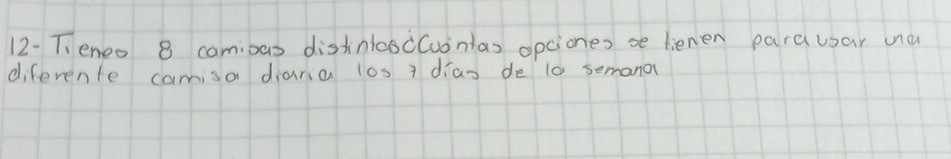 12- Tienes 8 camisas distintas¿Cuántas opciones se tienen para usar una
diferente camisa diaria los 7 días de la semana